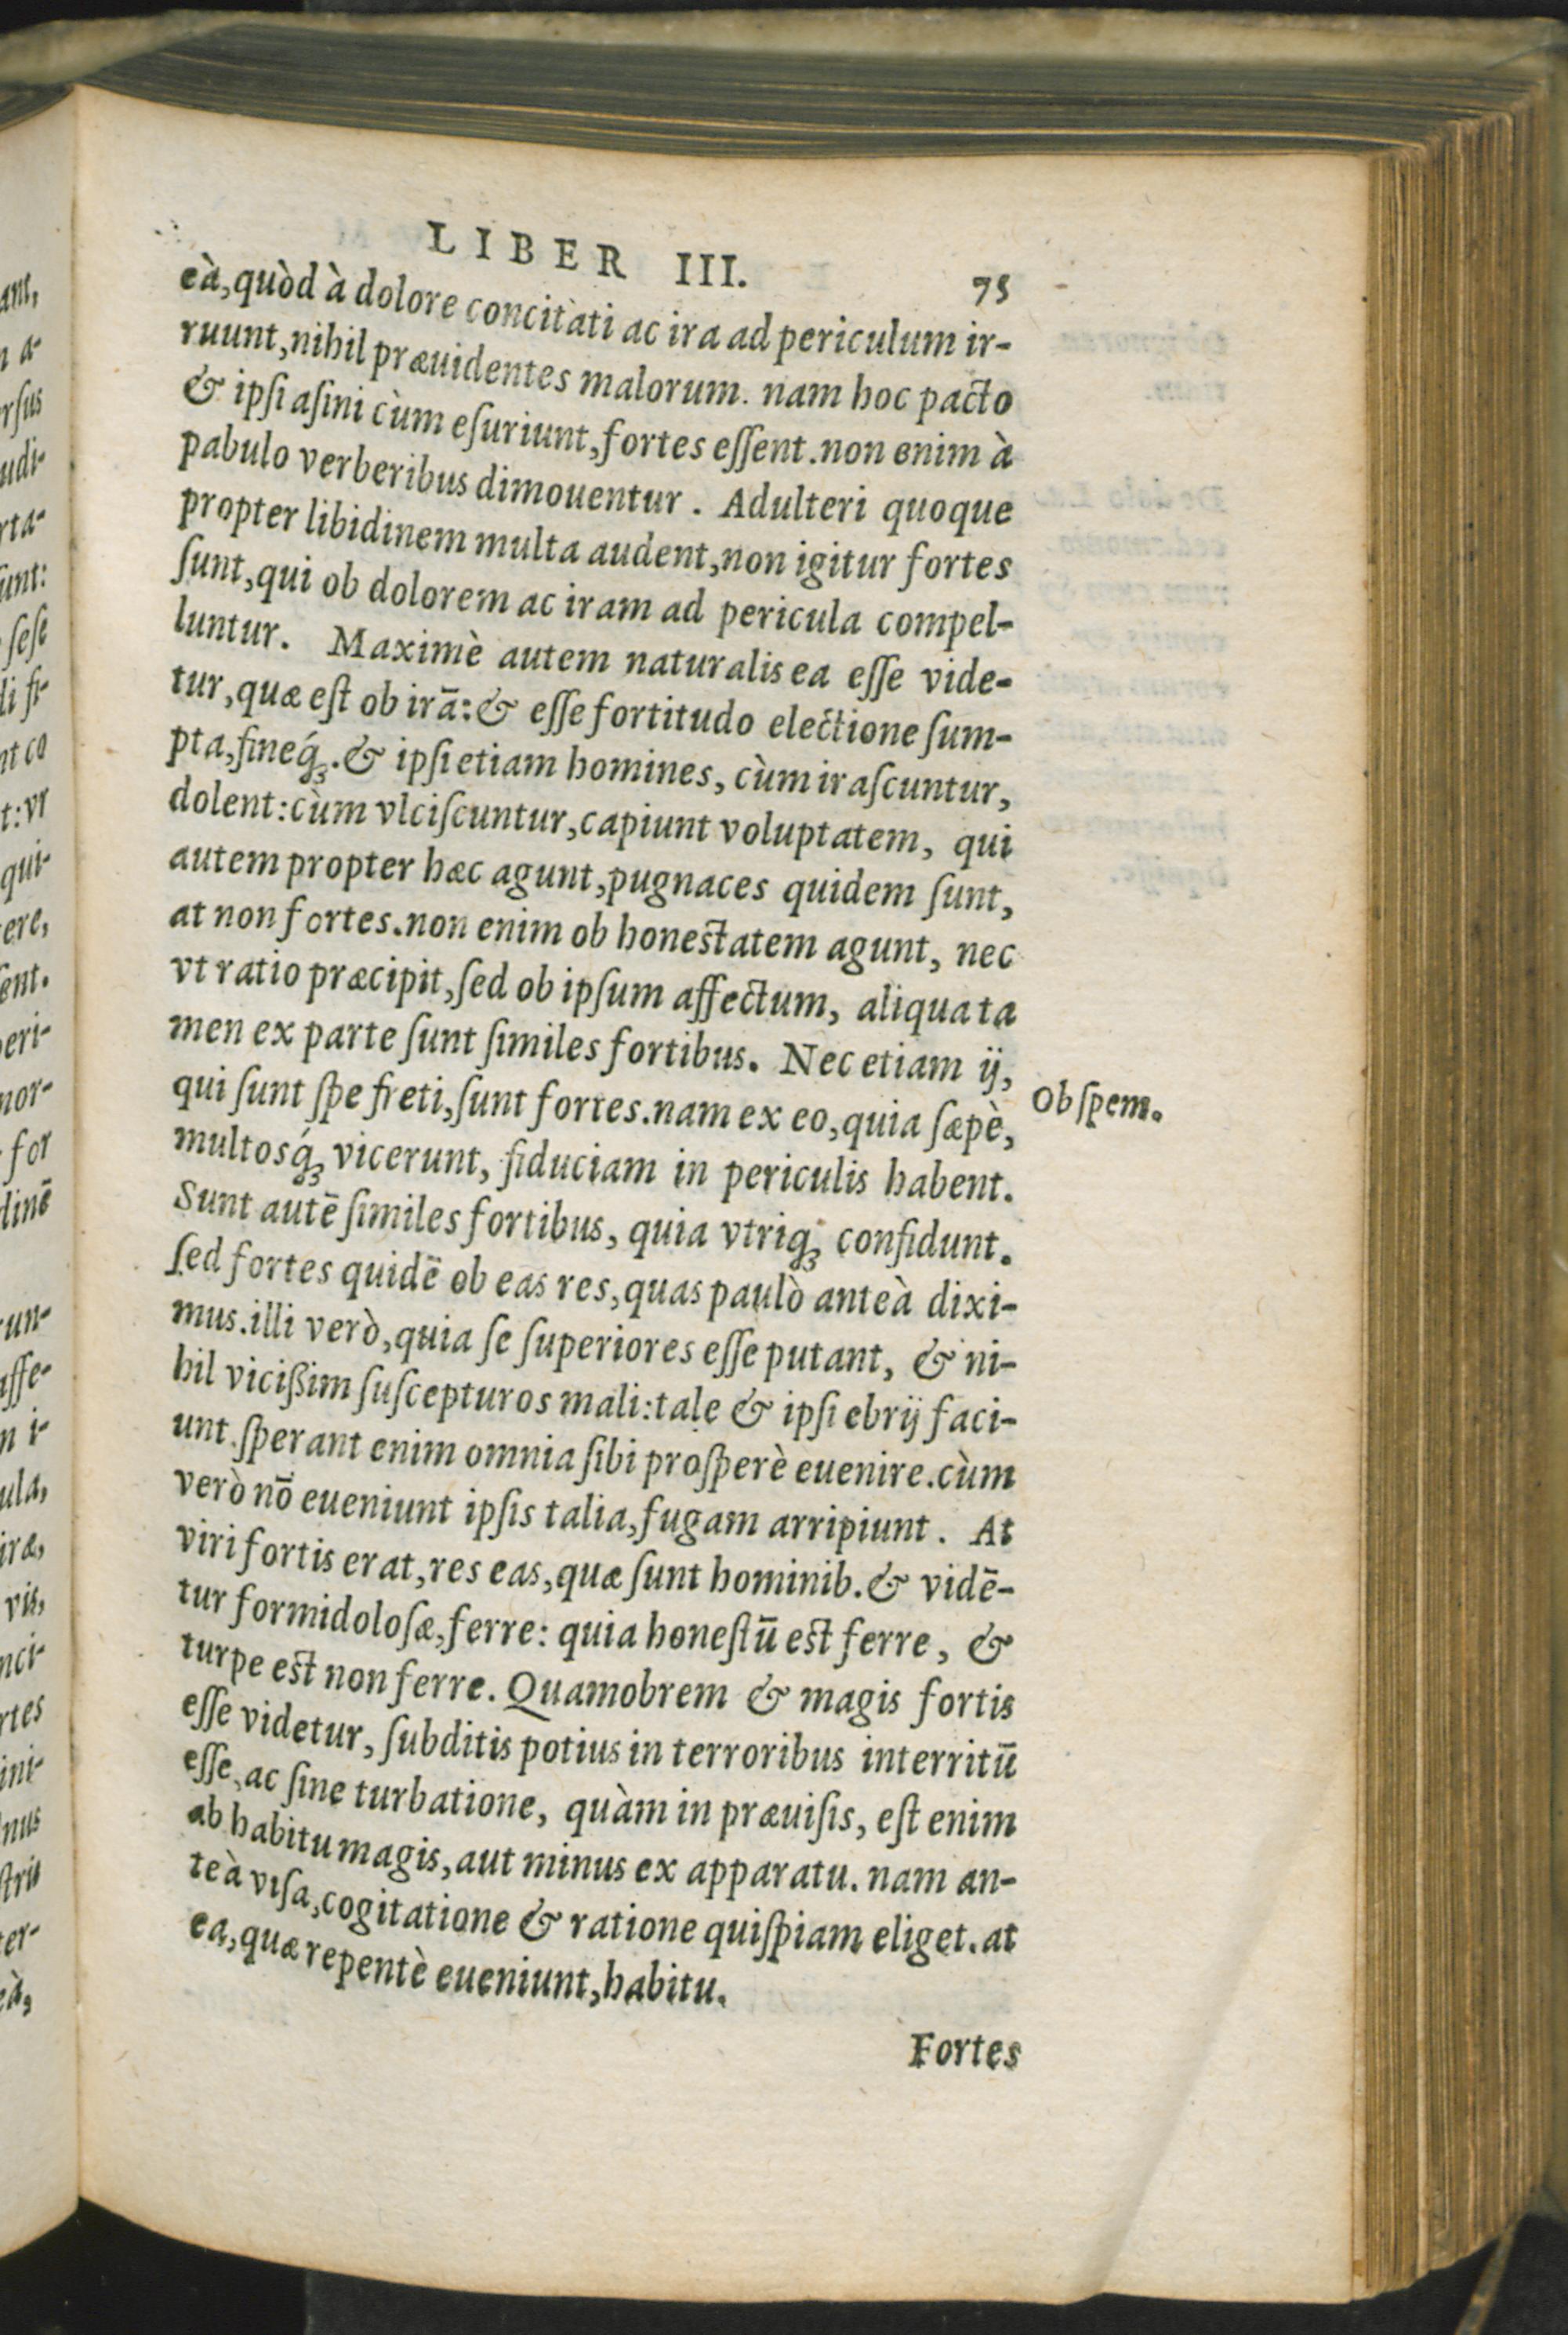 LIBER III. 75
eà, quòd à dolore concitati ac ira ad periculum ir-
ruunt, nihil præuidentes malorum. nam hoc pacto
& ipſi aſini cùm eſuriunt, fortes eſſent. non enim à
pabulo verberibus dimouentur. Adulteri quoque
propter libidinem multa audent, non igitur fortes
ſunt, qui ob dolorem ac iram ad pericula compel-
luntur. Maximè autem naturalis ea eſſe vide-
tur, quæ eſt ob irā: & eſſe fortitudo electione ſum-
pta, fineq́ꝫ. & ipſi etiam homines, cùm iraſcuntur,
dolent: cùm vlciſcuntur, capiunt voluptatem, qui
autem propter hæc agunt, pugnaces quidem ſunt,
at non fortes. non enim ob honeſtatem agunt, nec
vt ratio præcipit, ſed ob ipſum affectum, aliqua ta
men ex parte ſunt ſimiles fortibus. Nec etiam ij,
qui ſunt ſpe freti, ſunt fortes. nam ex eo, quia ſæpè,
Ob ſpem.
multosq́ꝫ vicerunt, fiduciam in periculis habent.
Sunt autē ſimiles fortibus, quia vtriqꝫ confidunt.
ſed fortes quidē ob eas res, quas paulò anteà dixi-
mus. illi verò, quia ſe ſuperiores eſſe putant, & ni-
hil vicißim ſuſcepturos mali: tale & ipſi ebrij faci-
unt. ſperant enim omnia ſibi proſperè euenire. cùm
verò nō eueniunt ipſis talia, fugam arripiunt. At
viri fortis erat, res eas, quæ ſunt hominib. & vidē-
tur formidoloſæ, ferre: quia honeſtū eſt ferre, &
turpe eſt non ferre. Quamobrem & magis fortis
eſſe videtur, ſubditis potius in terroribus interritū
eſſe, ac ſine turbatione, quàm in præuiſis, eſt enim
ab habitu magis, aut minus ex apparatu. nam an-
teà viſa, cogitatione & ratione quiſpiam eliget. at
ea, quæ repentè eueniunt, habitu.
Fortes